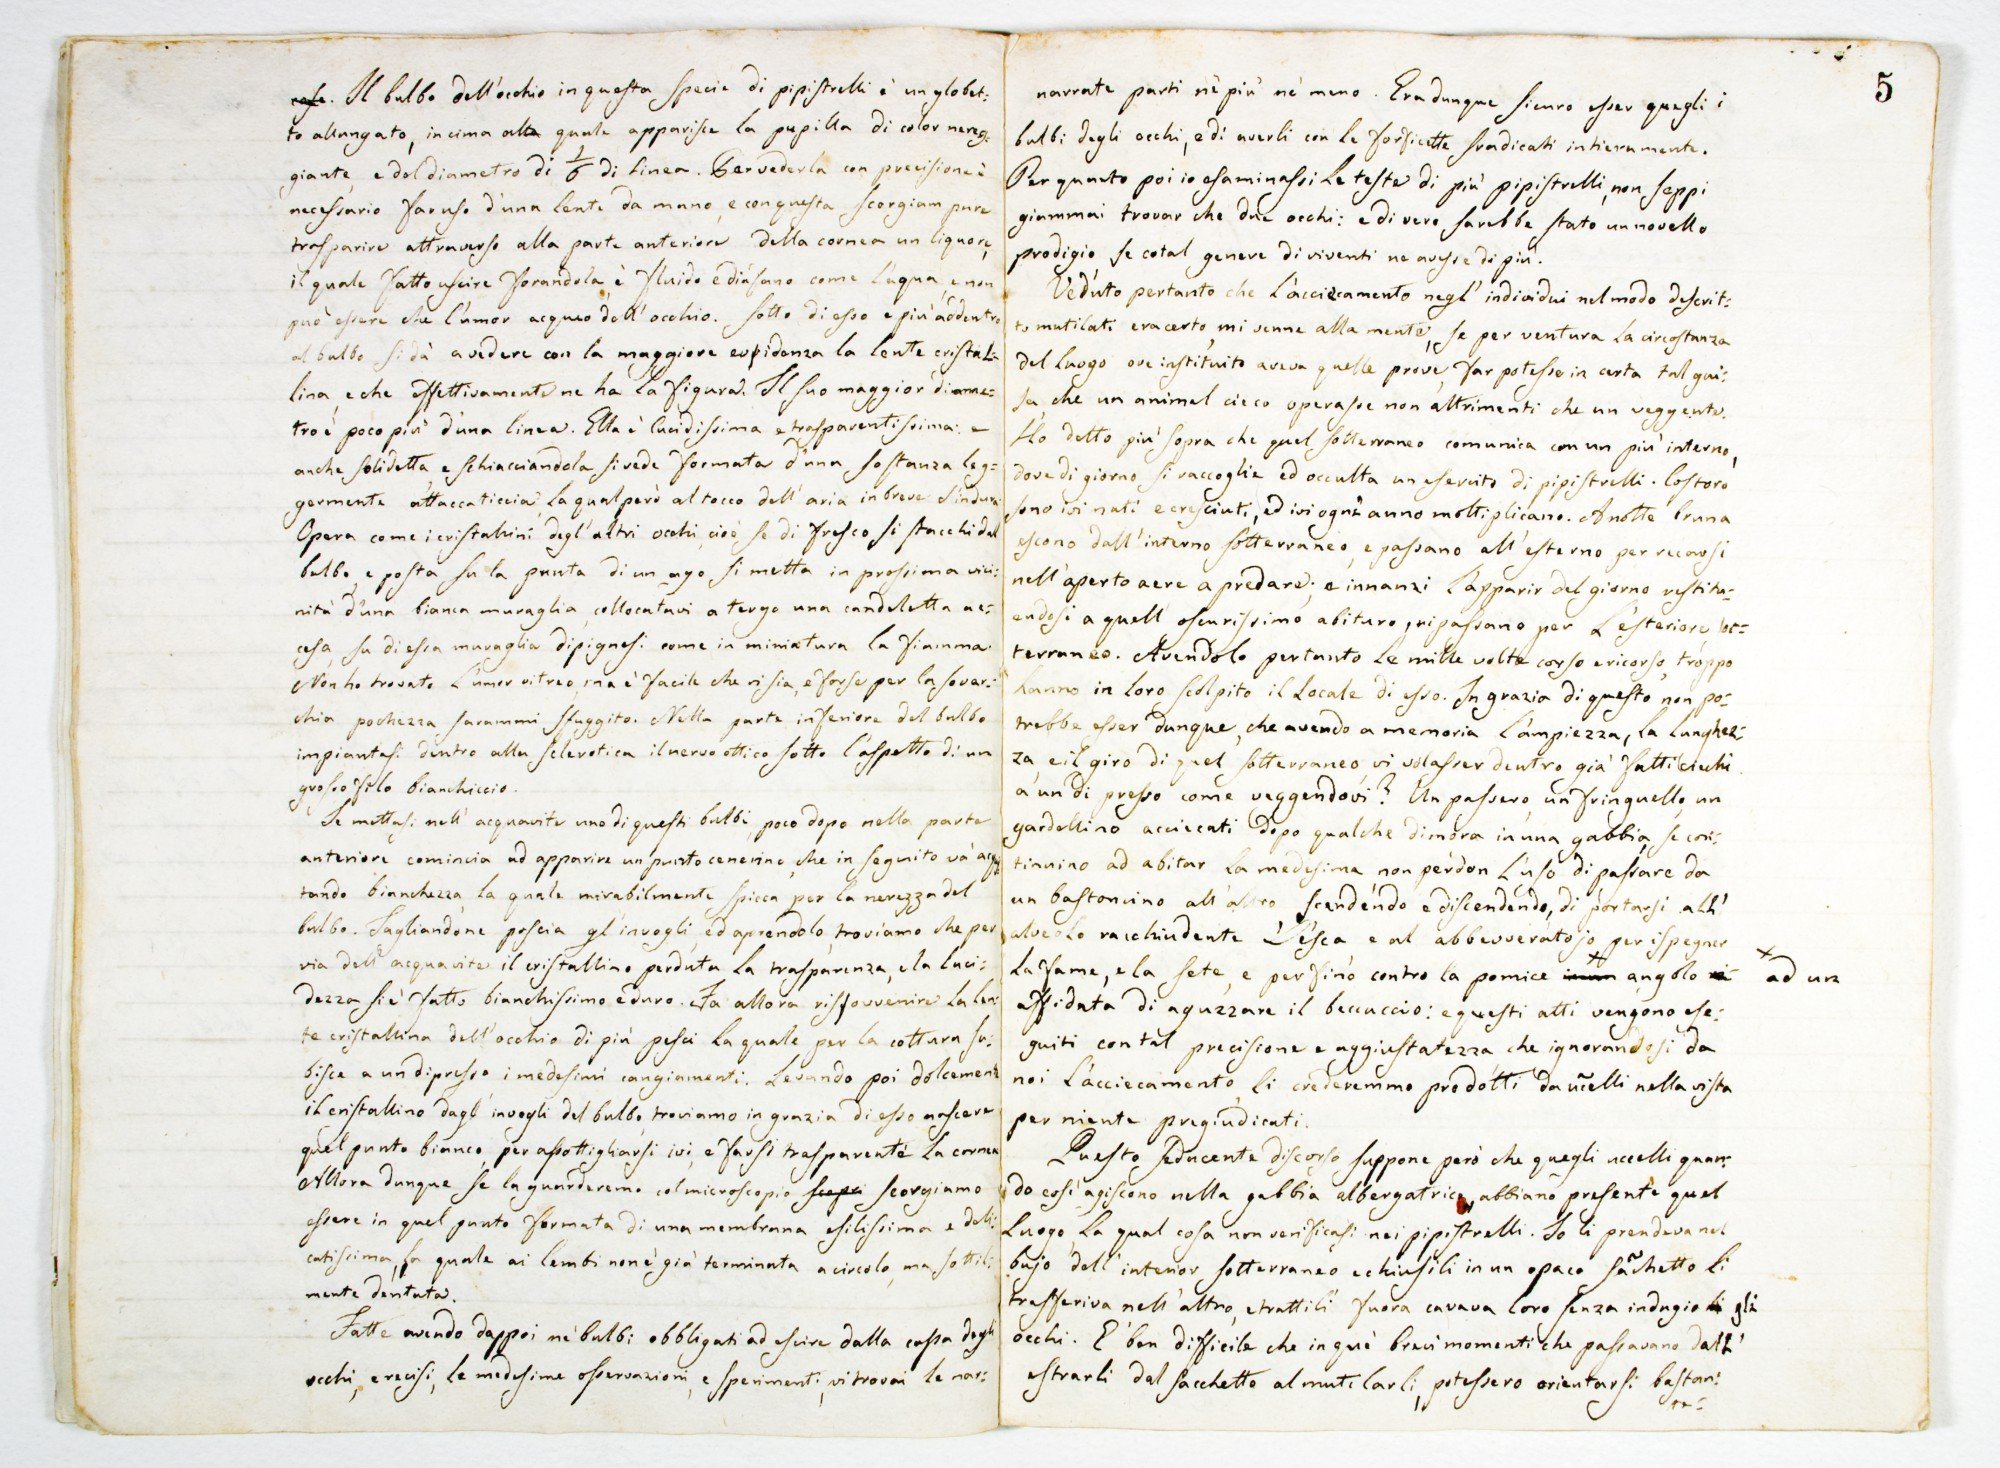 cose. Il bulbo dell'occhio in questa specie di pipistrelli è un globet-
to allungato, in cima alla quale apparisce la pupilla di color nereg-
giante, e del diametro di 1/6 di linea. Per vederla con precisione è
necessario far uso d'una lente da mano, e con questa scorgiam pure
trasparire attraverso alla parte anteriore della cornea un liquore,
il quale fatto uscire forandola è fluido e diafano come l'aqua, e non
può essere che l'umor acqueo dell'occhio. Sotto di esso e più addentro
al bulbo si dà a vedere con la maggiore evidenza la lente cristal-
lina, e che effettivamente ne ha la figura. Il suo maggior diame-
tro è poco più d'una linea. Ella è lucidissima e trasparentissima: e
anche solidetta e schiacciandola si vede formata d'una sostanza leg-
germente attaccaticcia, la qual però al tocco dell'aria in breve s'indura
Opera come i cristallini degl'altri occhi, cioè se di fresco si stacchi dal
bulbo, e posta su la punta di un ago si metta in prossima vici-
nità d'una bianca muraglia, collocatavi a tergo una candeletta ac-
cesa, su di essa muraglia dipignesi come in miniatura la fiamma.
Non ho trovato l'umor vitreo, ma è facile che vi sia, e forse per la sover-
chia pochezza sarammi sfuggito. Nella parte inferiore del bulbo
impiantasi dentro alla sclerotica il nervo ottico sotto l'aspetto di un
grosso filo bianchiccio.
Se mettasi nell'acquavite uno di questi bulbi, poco dopo nella parte
anteriore comincia ad apparire un punto cenerino, che in seguito và acqui
tando bianchezza la quale mirabilmente spicca per la nerezza del
bulbo. Tagliandone poscia gl'invogli, ed aprendolo, troviamo che per
via dell'acquavite il cristallino perduta la trasparenza, e la luci-
dezza si è fatto bianchissimo e duro. Fa allora rissovvenire la len-
te cristallina dell'occhio di più pesci la quale per la cottura su-
bisce a un dipresso i medesimi cangiamenti. Levando poi dolcemente
il cristallino dagl'invogli del bulbo troviamo in grazia di esso nascere
quel punto bianco per assottigliarsi ivi, e farsi trasparente la cornea
Allora dunque se la guarderemo col microscopio scopri scorgiamo
essere in quel punto formata di una membrana esilissima e deli-
catissima, la quale ai lembi non è già terminata a circolo, ma sottil-
mente dentata.
Fatte avendo dappoi ne' bulbi obbligati ad escire dalla cassa degli
occhi, e recisi, le medesime osservazioni, e sperimenti, vi trovai le nar-
5
narrate parti nè più nè meno. Era dunque sicuro esser quegli i
bulbi degli occhi, e di averli con le forficette sradicati intieramente.
Per quanto poi io esaminassi le teste di più pipistrelli, non seppi
giammai trovar che due occhi: e di vero sarebbe stato un novello
prodigio se cotal genere di viventi ne avesse di più.
Veduto pertanto che l'acciecamento negl'individui nel modo descrit-
to mutilati era certo, mi venne alla mente, se per ventura la circostanza
del luogo ove instituito aveva quelle prove, far potesse in certa tal gui-
sa che un animal cieco operasse non altrimenti che un veggente.
Ho detto più sopra che quel sotterraneo comunica con un più interno,
dove di giorno si raccoglie ed occulta un esercito di pipistrelli. Costoro
sono ivi nati e cresciuti, ed ivi ogni anno moltiplicano. A notte bruna
escono dall'interno sotterraneo, e passano all'esterno per recarsi
nell'aperto aere a predare; e innanzi l'apparir del giorno restitu-
endosi a quell oscurissimo abituro, ripassano per l'esteriore sot-
terraneo. Avendolo pertanto le mille volte corso e ricorso, troppo
hanno in loro scolpito il locale di esso. In grazia di questo non po-
trebbe esser dunque, che avendo a memoria l'ampiezza, la lunghez-
za e il giro di quel sotterraneo vi volasser dentro già fatti ciechi
a un di presso come veggendovi? Un passero, un fringuello, un
gardellino acciecati dopo qualche dimora in una gabbia, se con-
tinuino ad abitar la medesima non perdon l'uso di passare da
un bastoncino all'altro scendendo e discendendo, di portarsi all'
alveolo racchiudente l'esca e al abbeveratojo per ispegner
la fame, e la sete, e perfino contro la pomice angolo ad un
affidata di aguzzare il beccuccio: e questi atti vengono ese-
guiti con tal precisione e aggiustatezza che ignorandosi da
noi l'acciecamento li crederemmo prodotti da ucelli nella vista
per niente pregiudicati.
Questo seducente discorso suppone però che quegli uccelli quan-
do così agiscono nella gabbia albergatrice, abbiano presente quel
luogo, la qual cosa non verificasi nei pipistrelli. Io li prendeva nel
bujo dell'interior sotterraneo e chiusili in un opaco sachetto li
trasferiva nell'altro, e trattili fuora cavava loro senza indugio li gli
occhi. E' ben difficile che in que' brevi momenti che passavano dall'
estrarli dal sacchetto al mutilarli, potessero orientarsi bastan-
te-